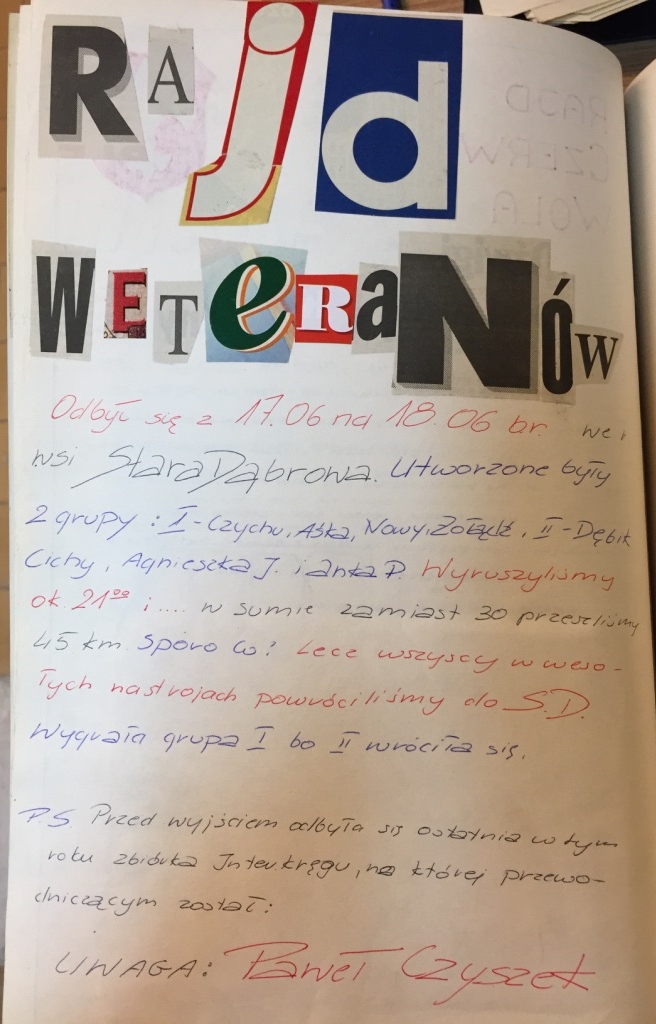 RAjd
WETeRaNÓW
Odbył się z 17.06 na 18.06 br. we
wsi Stara Dąbrowa. Utworzone były
2 grupy: I-Czychu, Aśka, Nowy, Żołądź, II-Dębik
Cichy, Agnieszka J. i Anka P. Wyruszyliśmy
ok. 21⁰⁰ i.... w sumie zamiast 30 przeszliśmy
45 km sporo co? Lecz wszyscy w weso-
łych nastrojach powróciliśmy do S.D.
Wygrała grupa I bo II wróciła się.
P.S. Przed wyjściem odbyła się ostatnia w tym
roku zbiórka Interkręgu, na której przewo-
dniczącym został:
UWAGA: Paweł Czyszek
RAJD
CZERW
WOLA